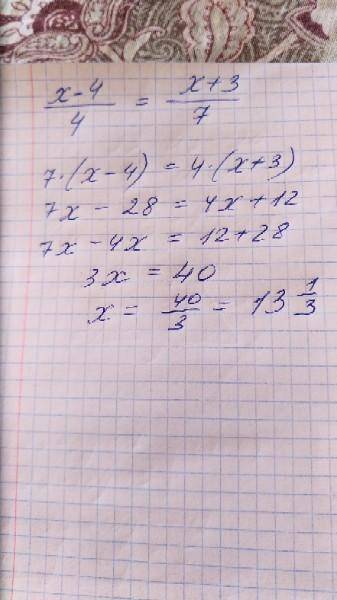 x-4/4 = x+3/7
7·(x-4) = 4·(x+3)
7x - 28 = 4x+12
7x - 4x = 12+28
3x = 40
x = 40/3 = 13 1/3